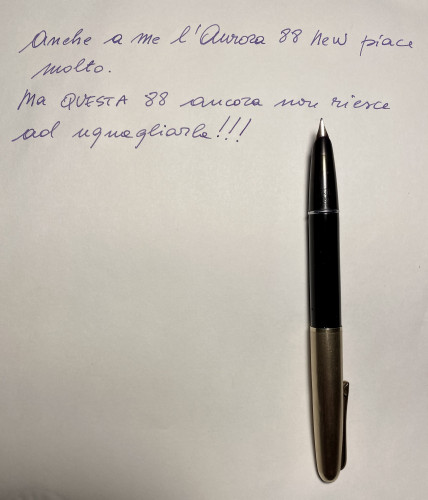 Anche a me l'Aurora 88 New piace
molto.
Ma QUESTA 88 ancora non riesce
ad uguagliarla!!!